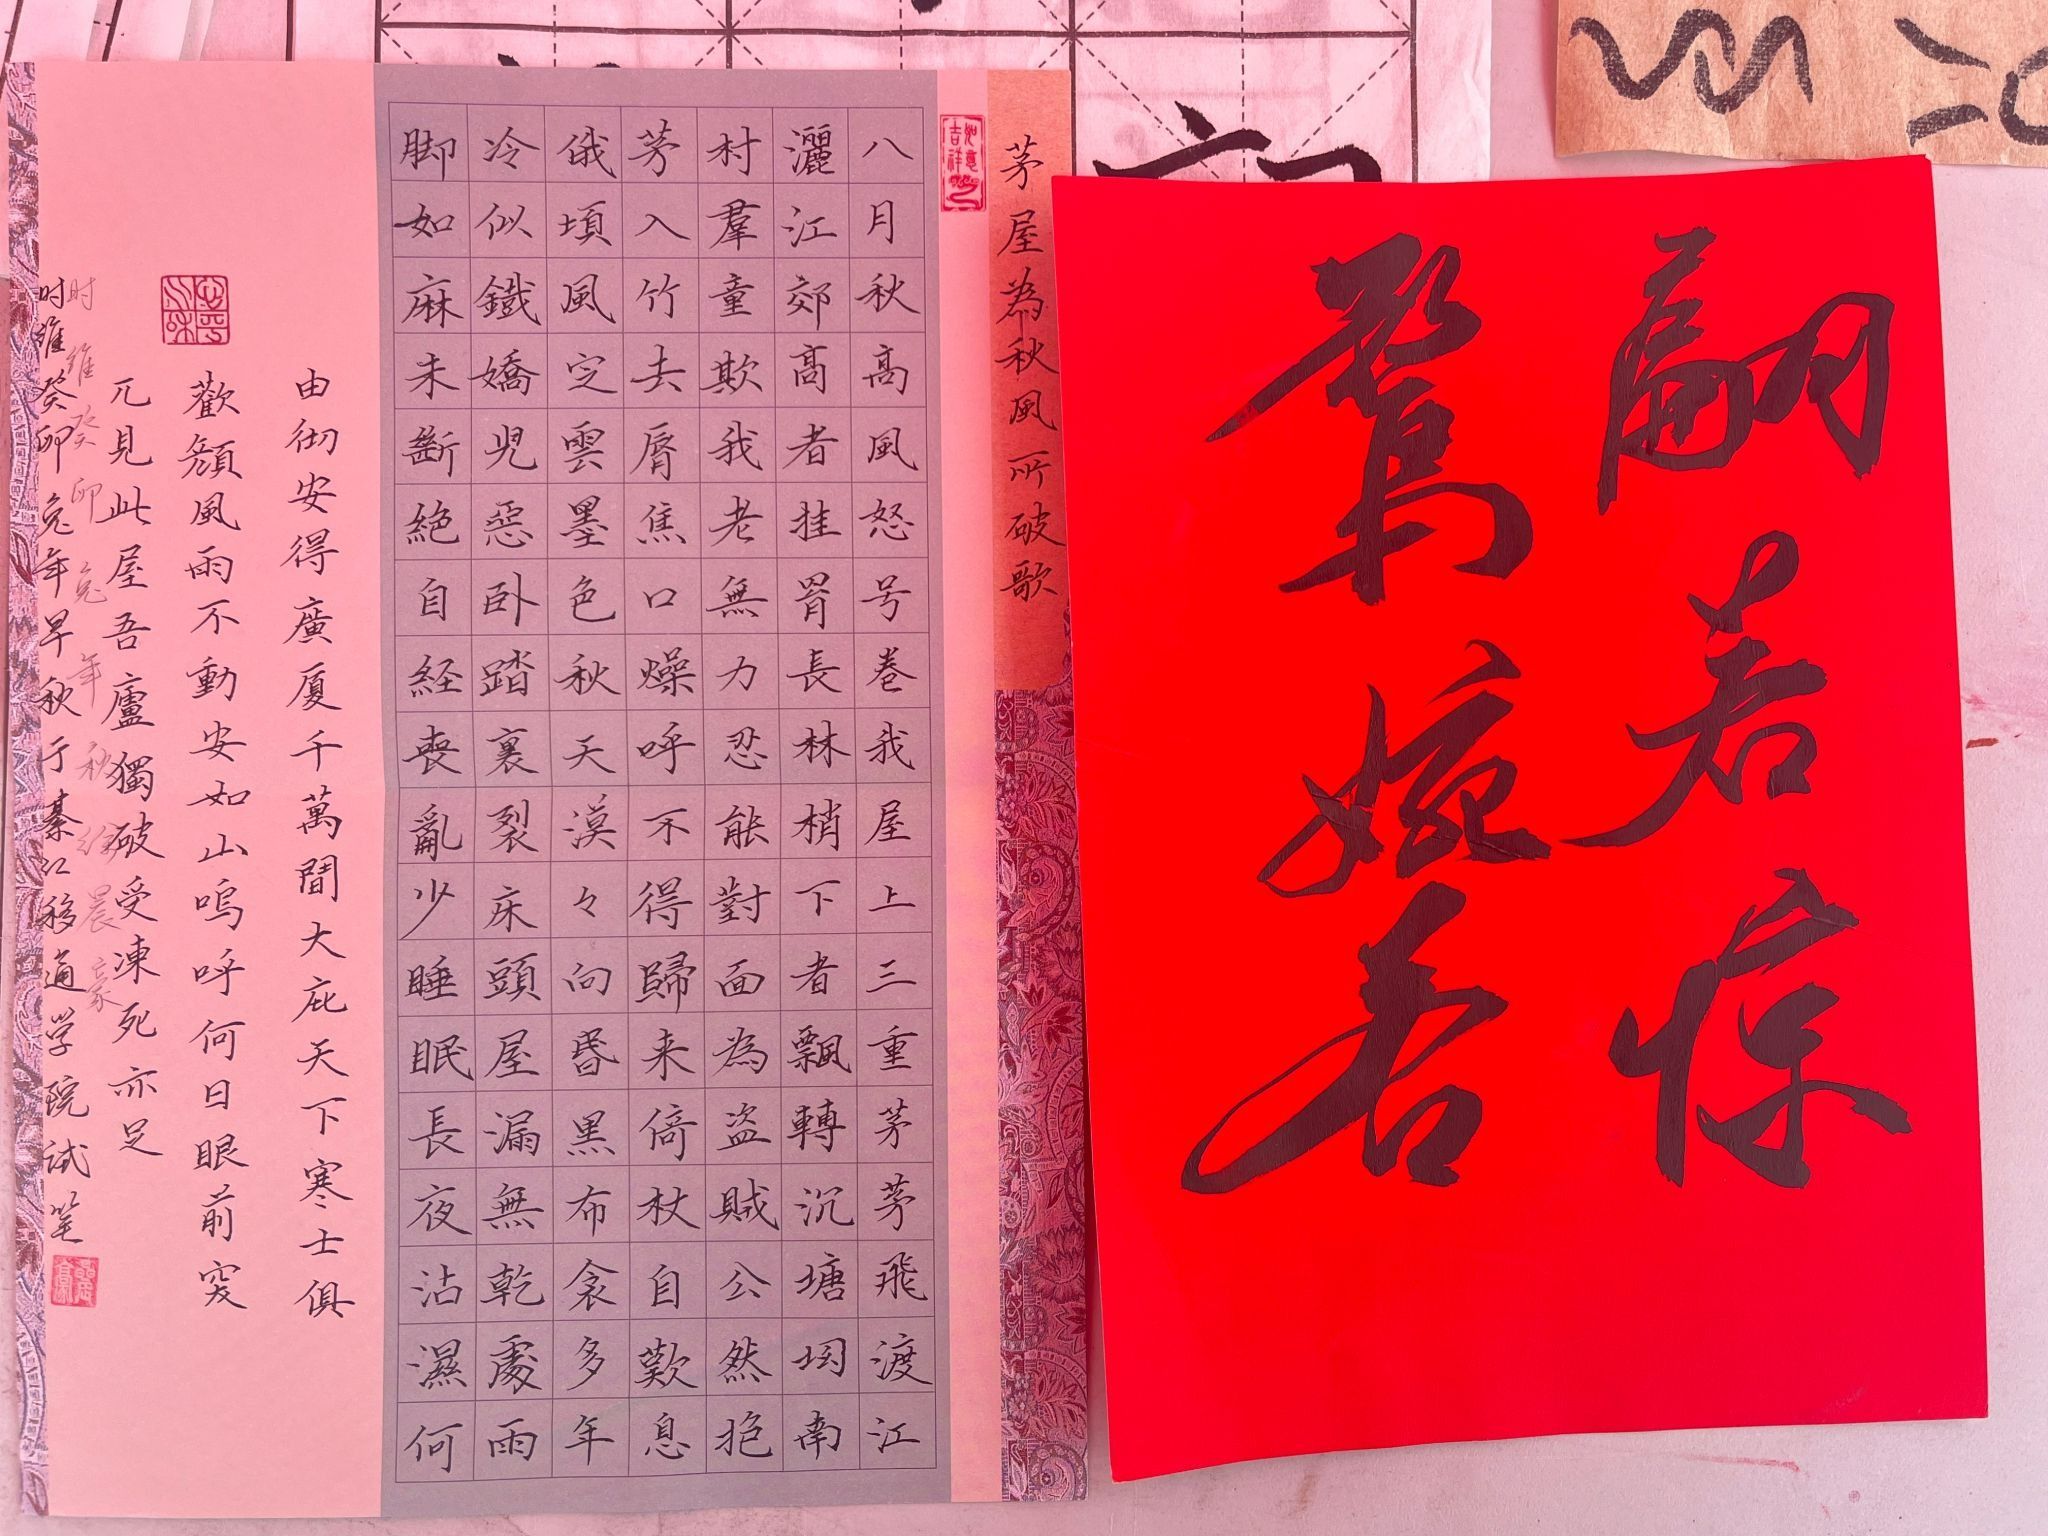 茅屋為秋風所破歌
如意吉祥
八月秋高風怒号卷我屋上三重茅茅飛渡江
灑江郊高者挂罥長林梢下者飄轉沉塘坳南
村羣童欺我老無力忍能對面為盗賊公然抱
茅入竹去脣焦口燥呼不得歸来倚杖自歎息
俄頃風定雲墨色秋天漠々向昏黑布衾多年
冷似鐵嬌児惡卧踏裏裂床頭屋漏無乾處雨
脚如麻未斷絶自経喪亂少睡眠長夜沾濕何
由彻安得廣厦千萬間大庇天下寒士俱
歡顔風雨不動安如山嗚呼何日眼前突
兀見此屋吾廬獨破受凍死亦足
时維癸卯兔年秋徐晨豪
时維癸卯兔年早秋于綦江移通学院试笔
翩若惊
鴻婉若